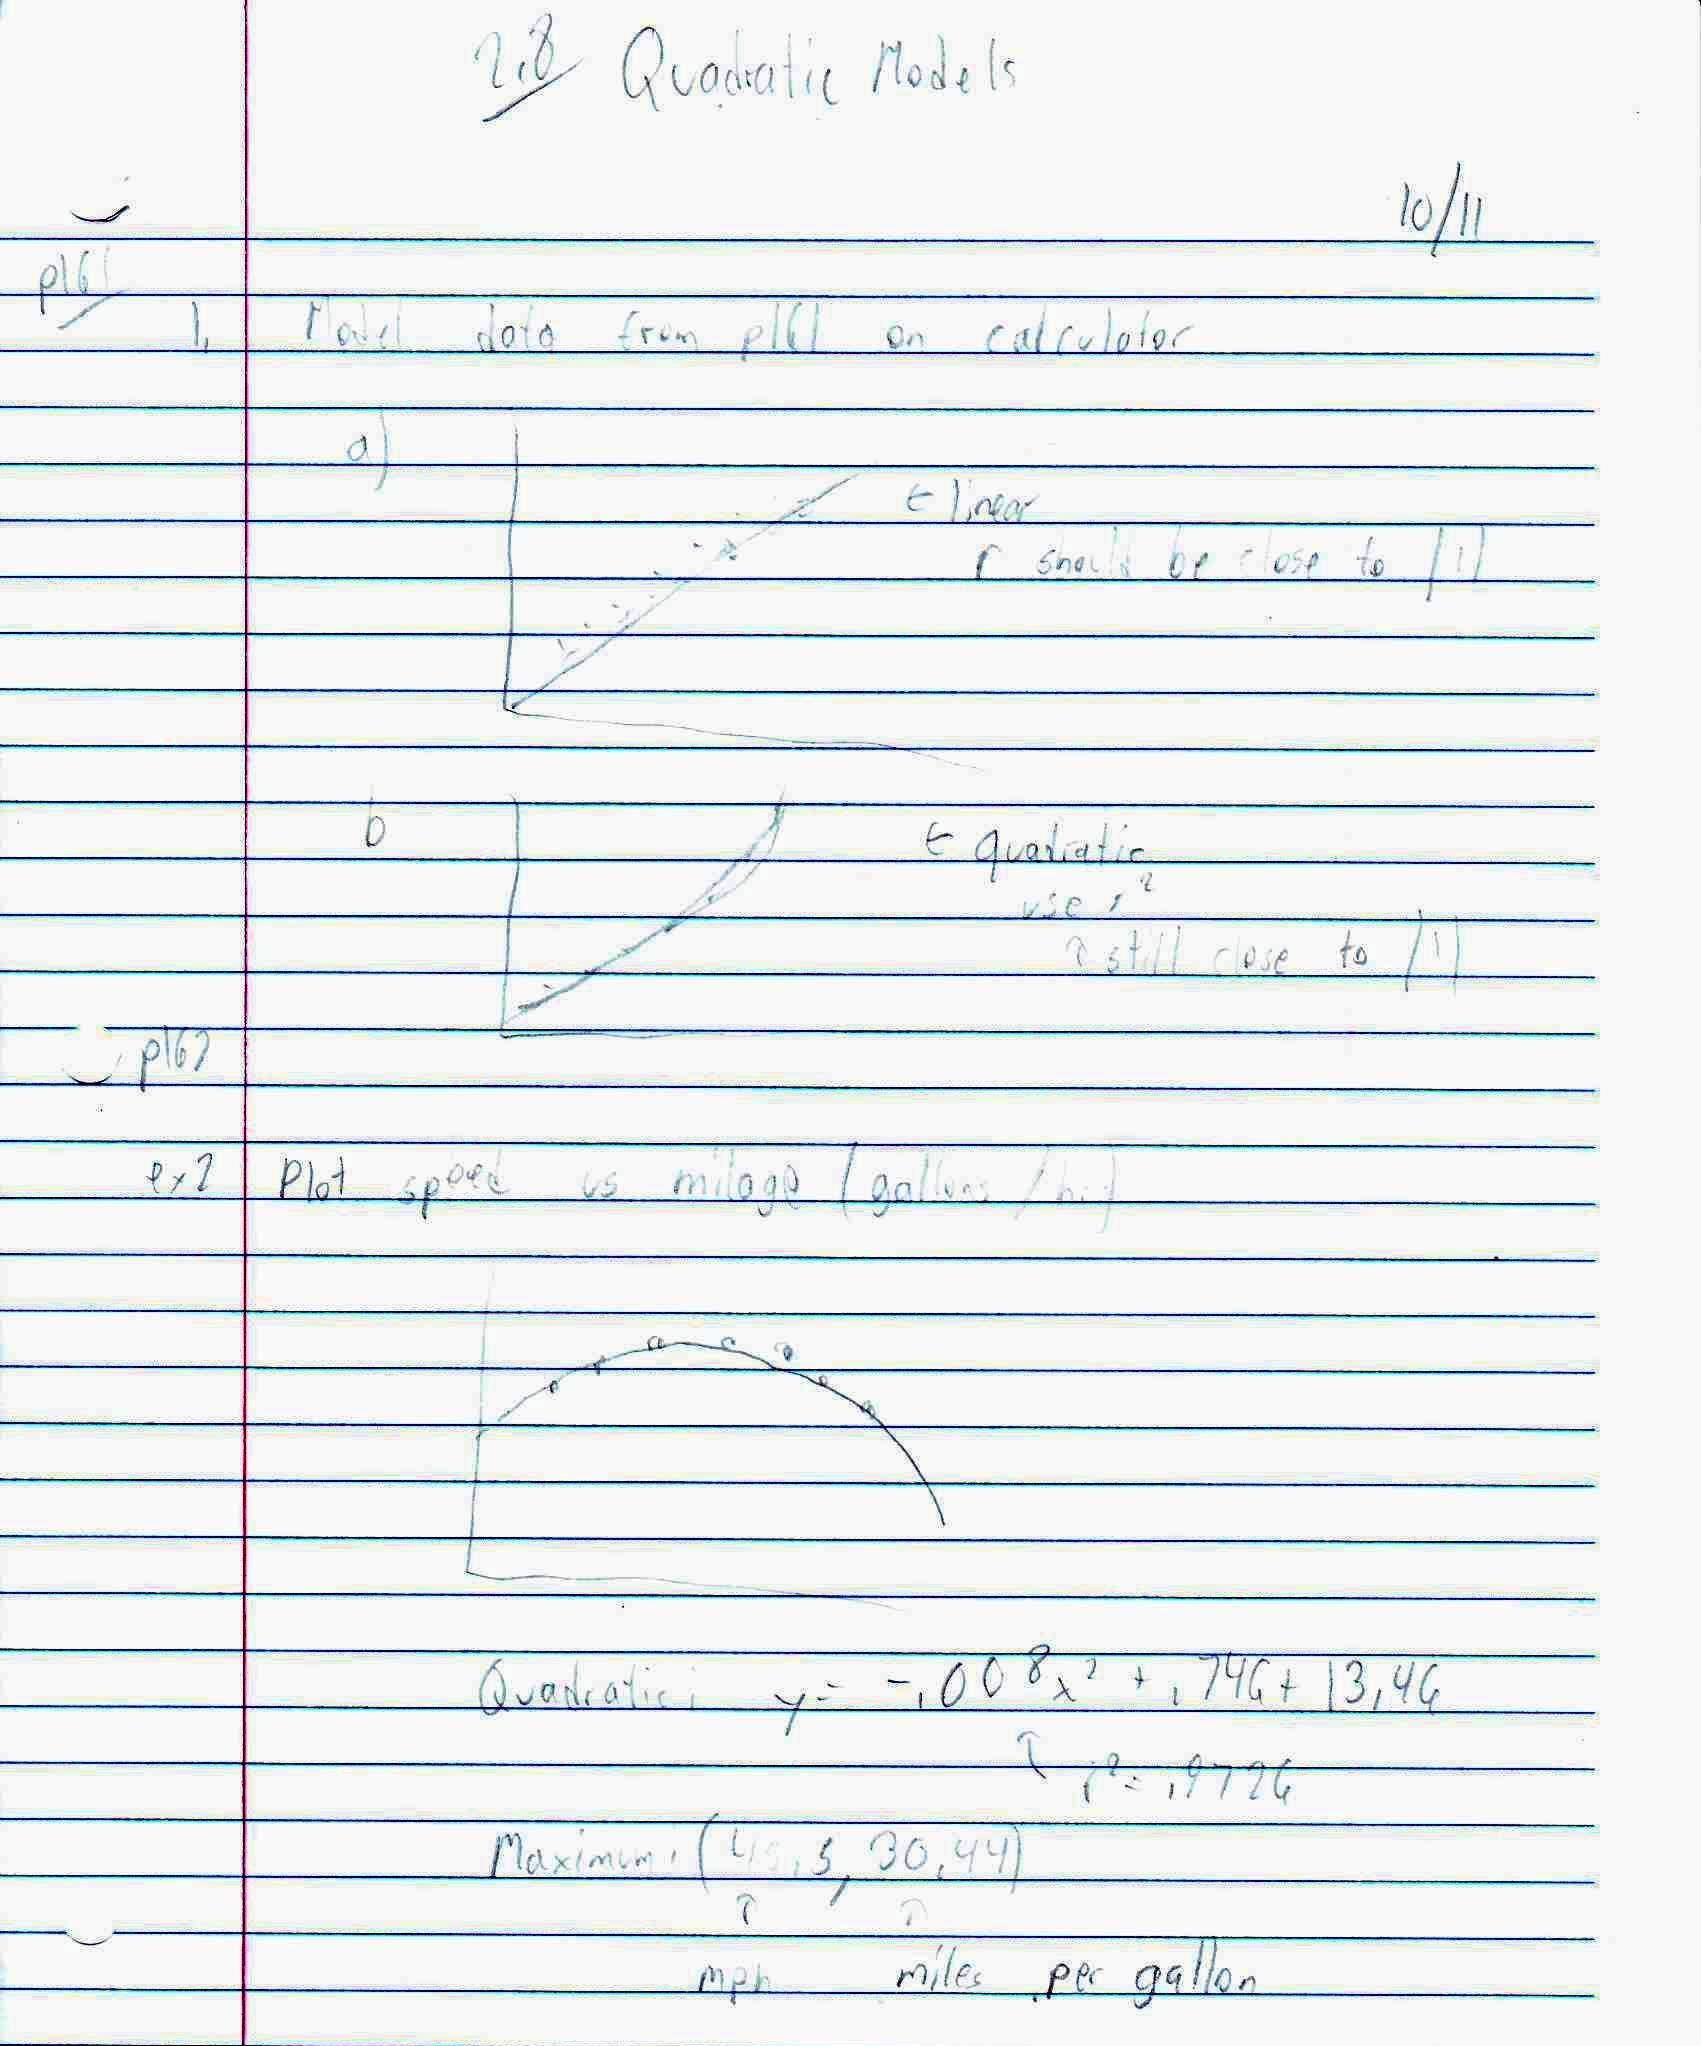 2.8 Quadratic Models
10/11
p161
1. Model data from p161 on calculator
a)
← linear
r should be close to |1|
b
← quadratic
use r²
↑ still close to |1|
p162
ex2 Plot speed vs milage (gallons/hr)
Quadratic: y= -.008x² + .746+ 13.46
↑ r²= .9726
Maximum: (45.5, 30.44)
↑ ↑
mph miles per gallon